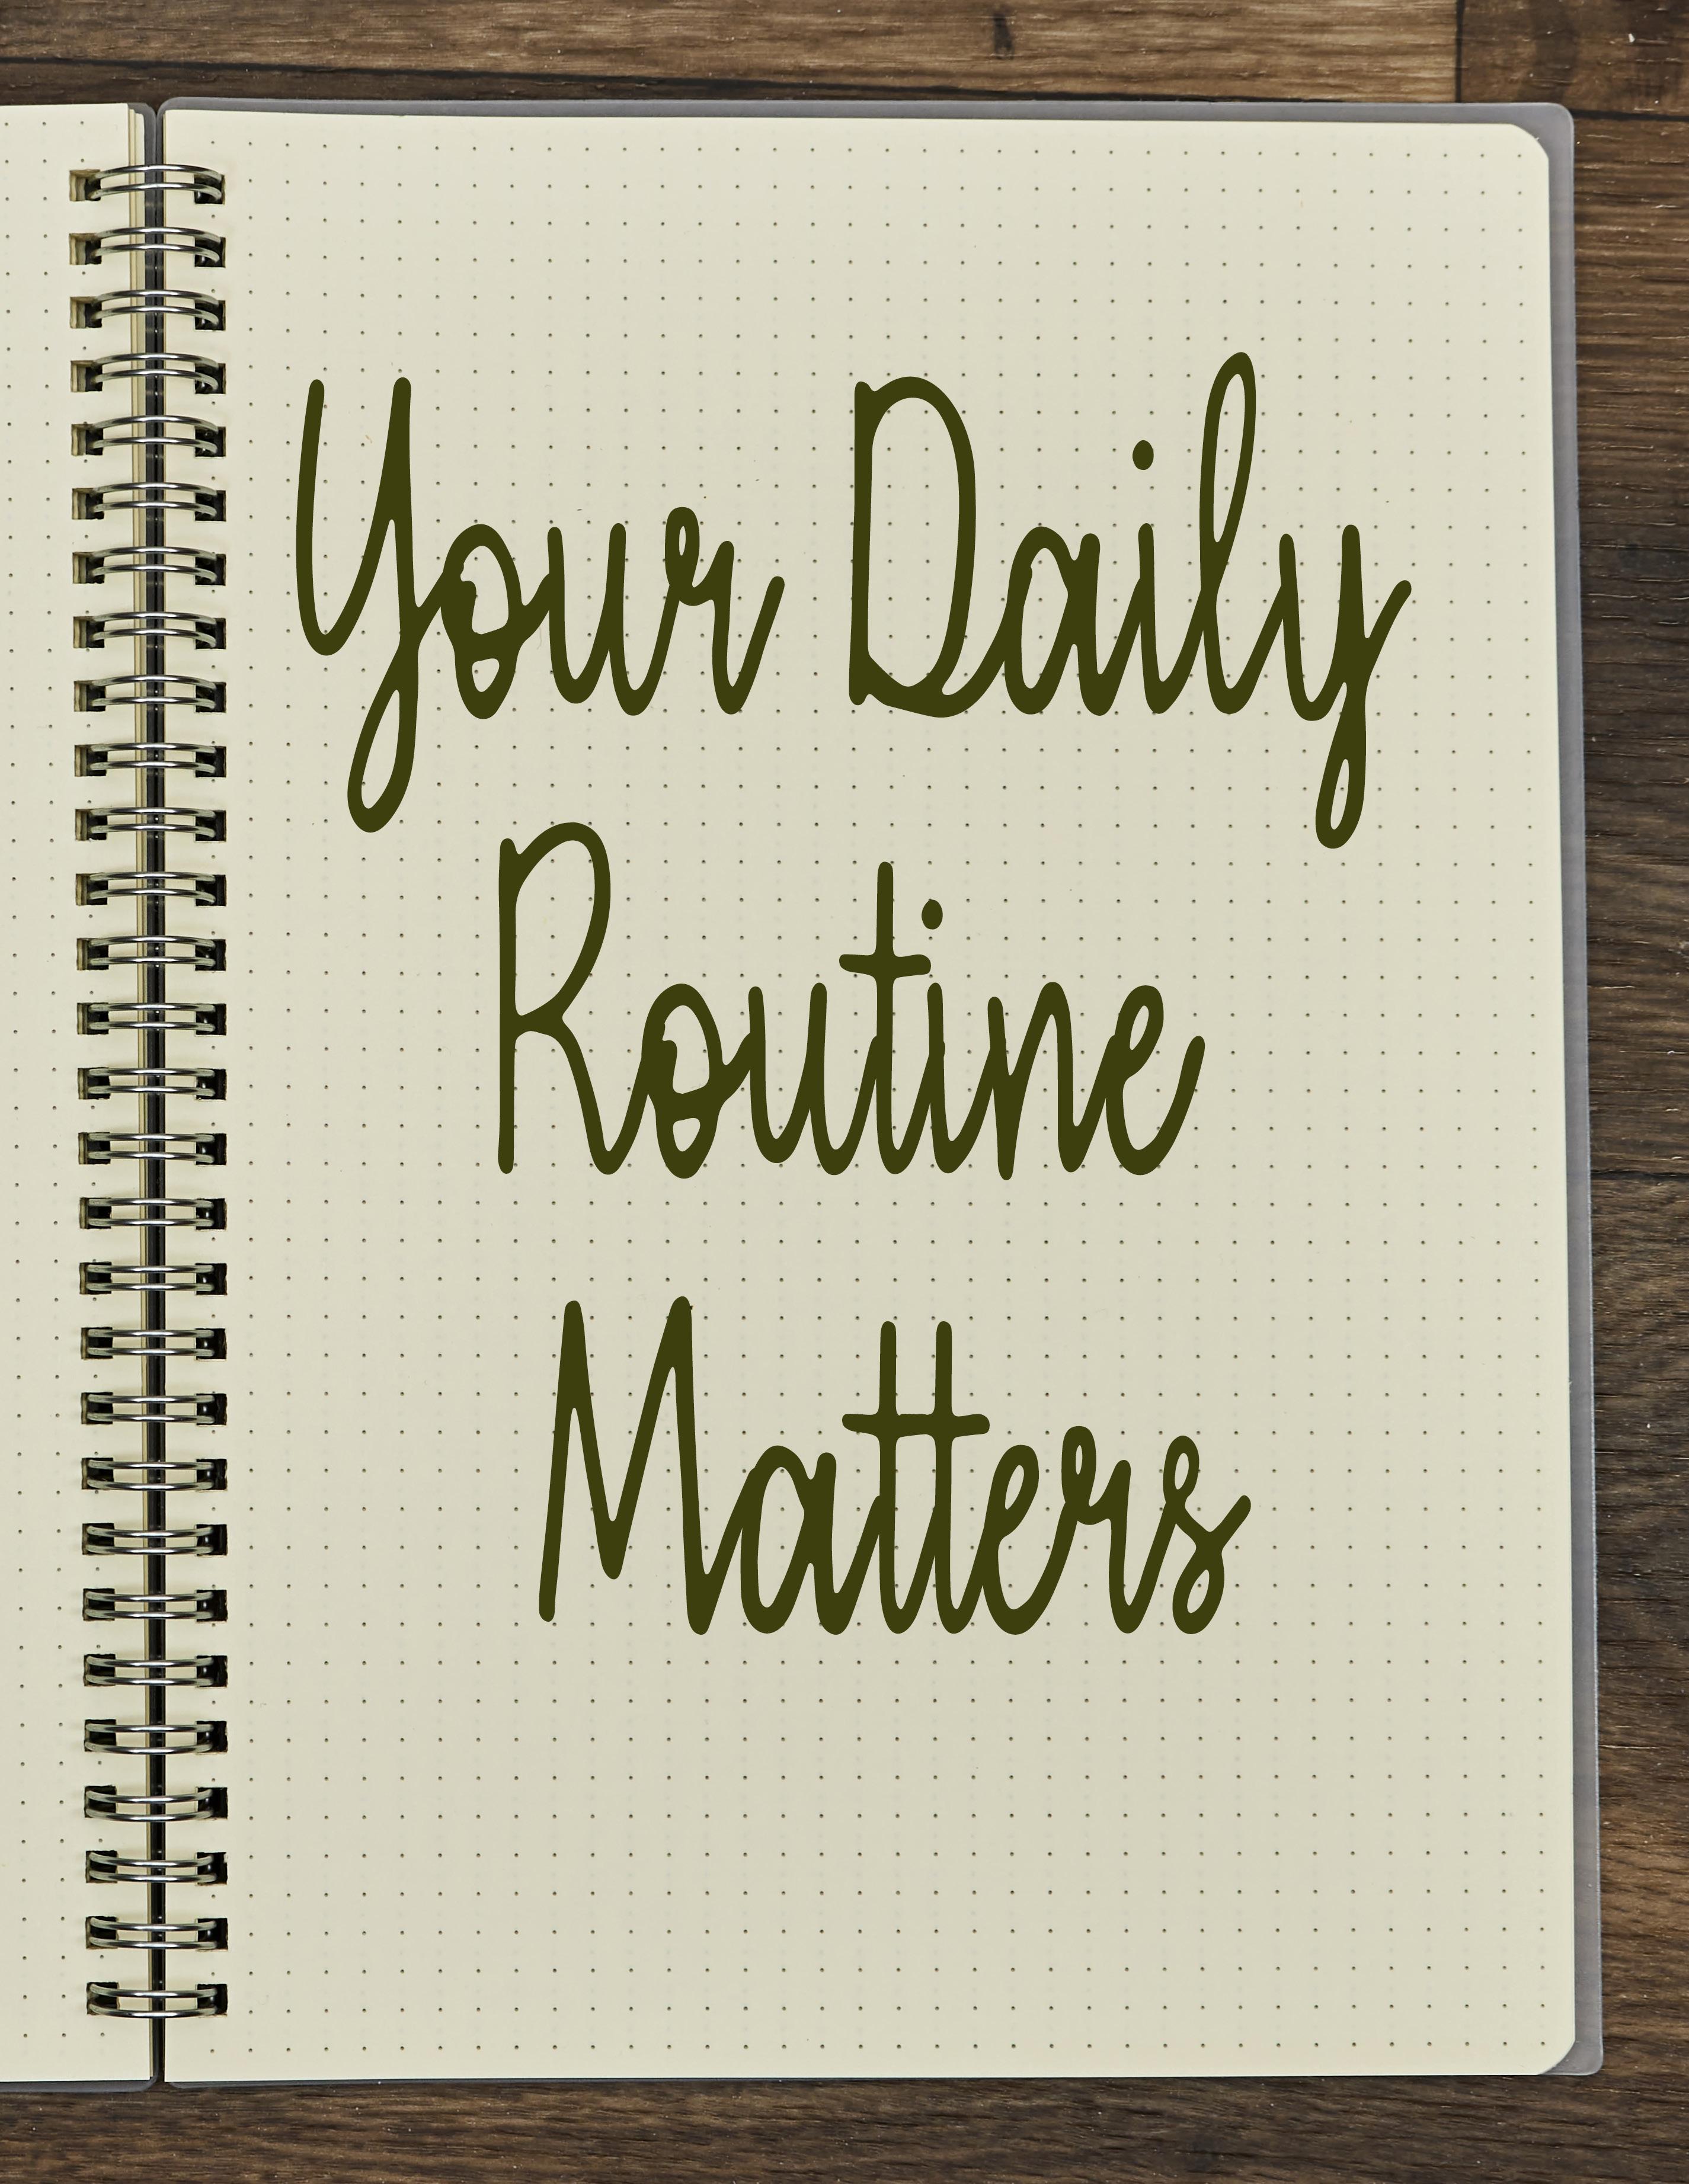 Your Daily
Routine
Matters